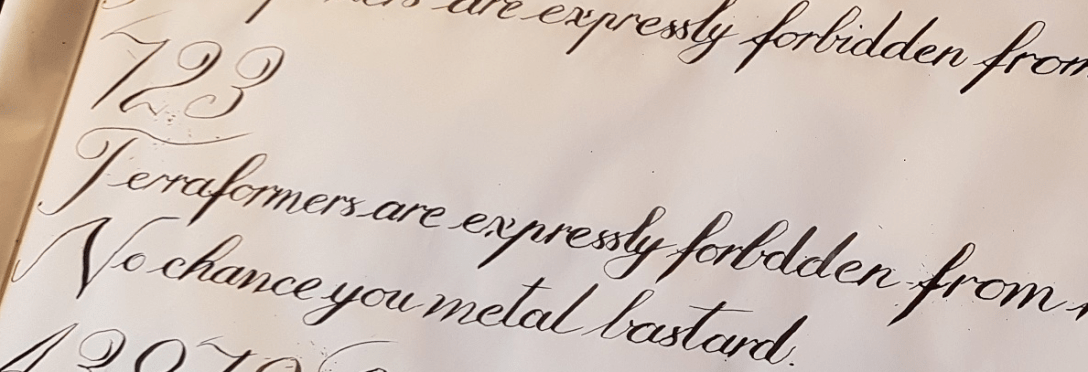 are expressly forbidden from
723
Terraformers are expressly forbdden from
No chance you metal bastard.